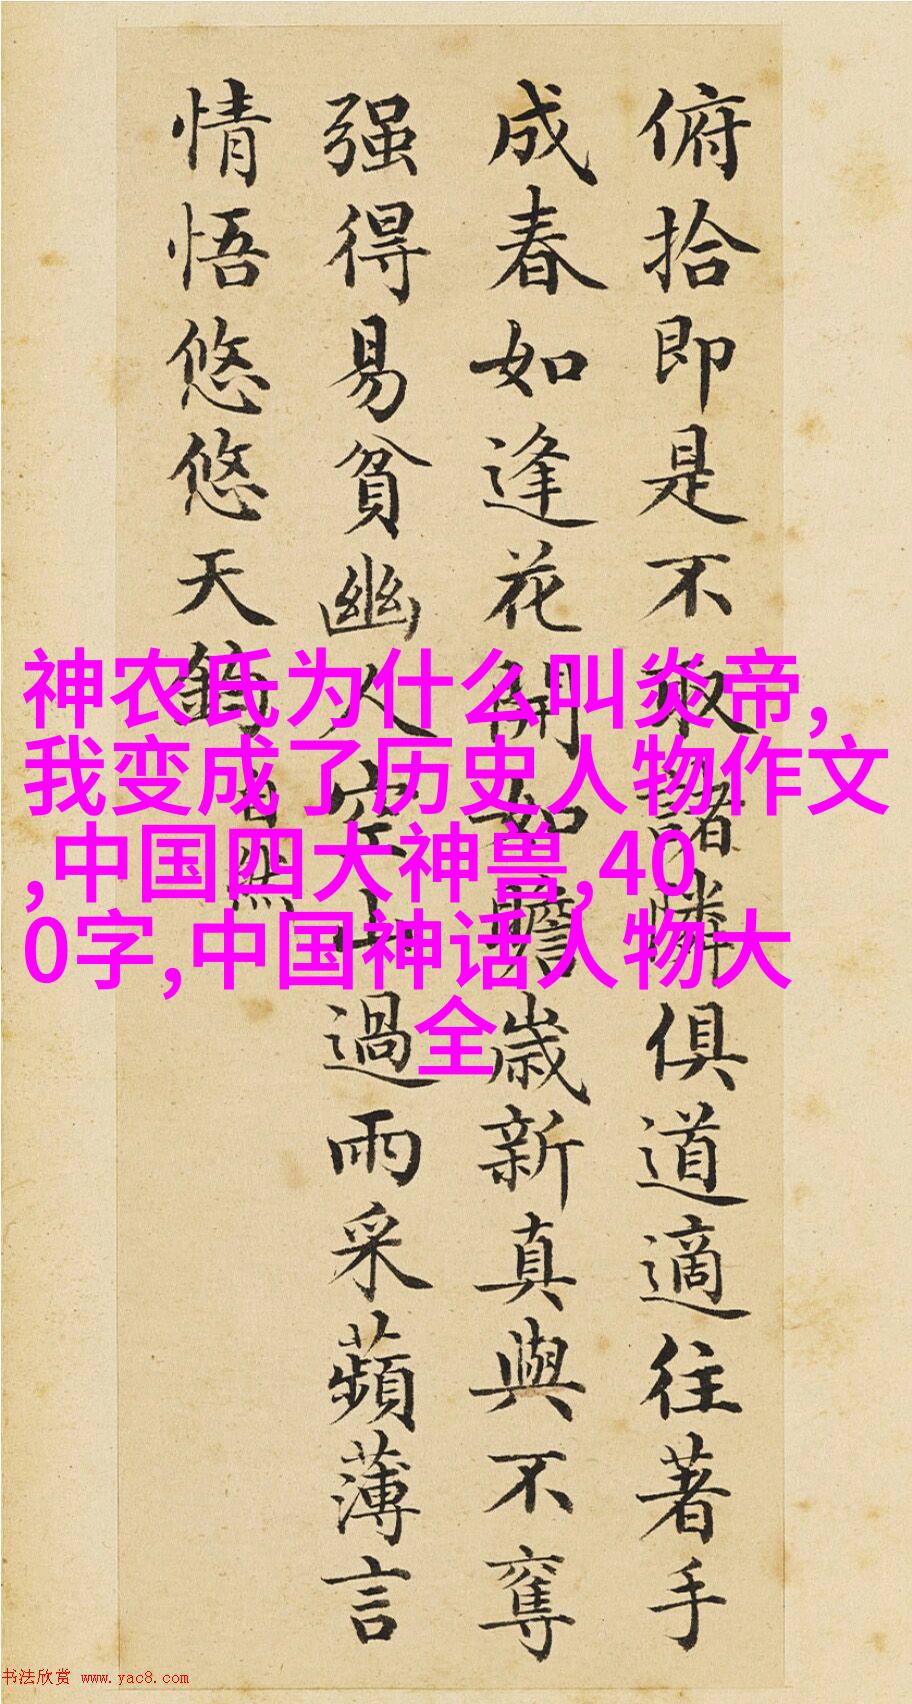 俯拾即是不取諸隣俱道適往著手
成春如逢花開如瞻歲新真與不奪
强得易貧幽人空山過雨采蘋薄言
情悟悠悠天鈞
自然
神农氏为什么叫炎帝,
我变成了历史人物作文
,中国四大神兽,40
0字,中国神话人物大
全
书法欣赏 www.yac8.com